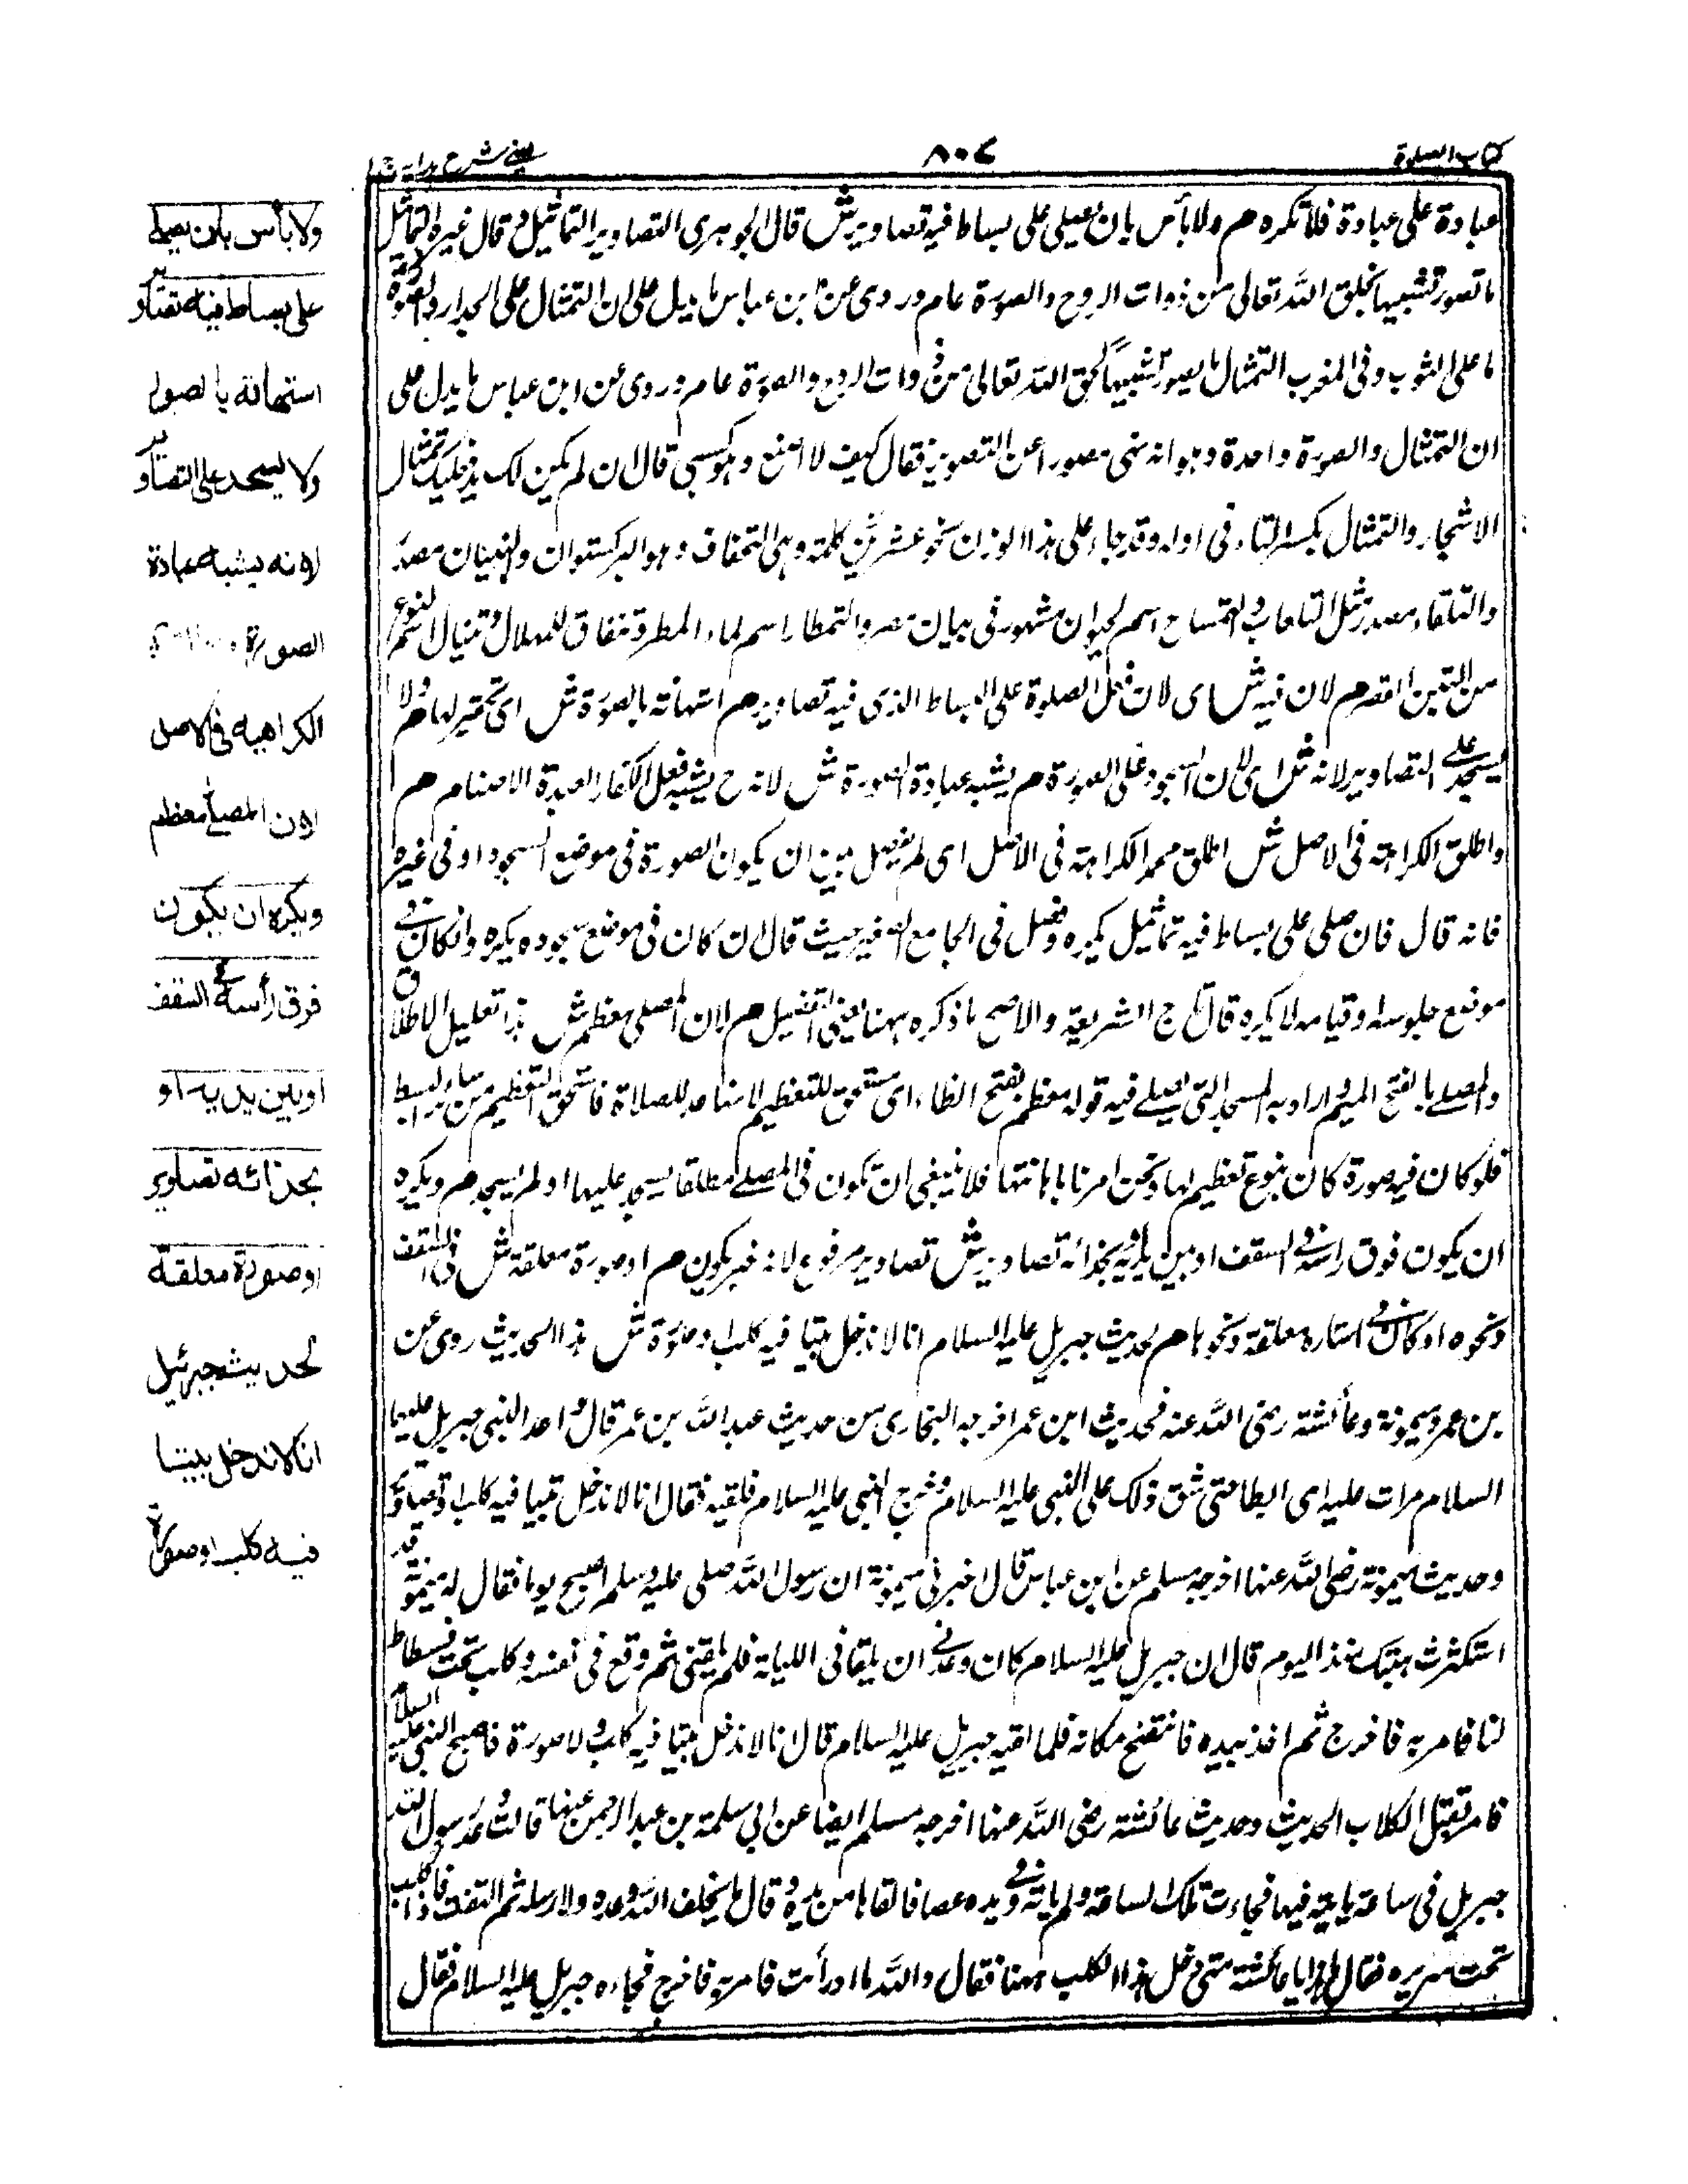 كتاب الصلوة
٨٠٧
عينى شرح هدايه
عبادة على عبادة فلا تكره م ولا بأس بان يصلى على بساط فيه تصاوير ش قال الجوهرى التصاوير التماثيل وقال غيره التماثيل
ما تصور تشبيها بخلق الله تعالى من ذوات الروح والصورة عام وروى عن ابن عباس ما يدل على ان التمثال على الجدار والصورة
ما على الثوب وفى المغرب التمثال ما يصور تشبيهاً بخلق الله تعالى من ذوات الروح والصورة عام وروى عن ابن عباس ما يدل على
ان التمثال والصورة واحدة وهو انه نهى مصورا عن التصوير فقال كيف لا اصنع وهو كسبى قال ان لم يكن لك بد فعليك بتمثال
الاشجار والتمثال بكسر التاء فى اوله وقد جاء على هذا الوزن نحو عشرين كلمة وهى التجفاف وهو البركستوان والتبيان مصدر
والتلقاء مصدر مثل التلعاب والتمساح اسم لحيوان مشهور فى بيان مصر والتمطار اسم لماء المطر وتنفاق للهلال وتنبال اسم لنوع
من التبن اقصر م لان فيه ش اى لان فى فعل الصلوة على البساط الذى فيه تصاوير م استهانة بالصورة ش اى تحقير لها م ولا
يسجد على التصاوير لانه ش اى لان السجود على الصورة م يشبه عبادة الصورة ش لانه ح يشبه فعل الكفار العبدة الاصنام م
واطلق الكراهة فى الاصل ش اطلق محمد الكراهة فى الاصل اى لم يفصل بين ان يكون الصورة فى موضع السجود او فى غيره
فانه قال فان صلى على بساط فيه تماثيل يكره وفصل فى الجامع الصغير حيث قال ان كان فى موضع سجوده يكره وان كان فى
موضع جلوسه وقيامه لا يكره قال تاج الشريعة والاصح ما ذكره ههنا يعنى التفصيل م لان المصلى معظم ش هذا تعليل الاطلاق
والمصلى بالفتح الميم واراد به المسجد التى يصلى فيه قوله معظم بفتح الظاء اى مستحق للتعظيم لانها عد للصلاة فاستحق التعظيم من سائر البسط
فلو كان فيه صورة كان بنوع تعظيم لها ونحن امرنا باهانتها فلا ينبغى ان تكون فى المصلى مطلقا يسجد عليها او لم يسجد م ويكره
ان يكون فوق راسه فى السقف او بين يديه او بحذائه تصاوير ش تصاوير مرفوع لانه خبر يكون م او صورة معلقة ش فى السقف
ونحوه او كان فى استاره معلقة ونحوها م لحديث جبريل عليه السلام انا لا ندخل بيتا فيه كلب او صورة ش هذا الحديث روى عن
بن عمر وميمونة وعائشة رضى الله عنه فحديث ابن عمر اخرجه البخارى من حديث عبد الله بن عمر قال واعد النبى جبريل عليهما
السلام مرات عليه اى ابطا حتى شق ذلك على النبى عليه السلام فخرج النبى عليه السلام فلقيه فقال انا لا ندخل بيتا فيه كلب او تصاوير
وحديث ميمونة رضى الله عنها اخرجه مسلم عن ابن عباس قال اخبرنى ميمونة ان رسول الله صلى عليه وسلم اصبح يوما فقال له ميمونة قد
استكثرت هيئتك منذ اليوم قال ان جبريل عليه السلام كان وعدنى ان يلقانى الليلة فلم يلقنى ثم وقع فى نفسه كلب تحت فسطاط
لنا فامر به فاخرج ثم اخذ بيده فانتضح مكانه فلما لقيه جبريل عليه السلام قال انا لا ندخل بيتا فيه كلب ولا صورة فاصبح النبى عليه السلام
فامر بقتل الكلاب الحديث وحديث عائشة رضى الله عنها اخرجه مسلم ايضا عن ابى سلمة بن عبد الرحمن عنها قالت وعد رسول الله
جبريل فى ساعة ياتيه فيها فجاءت تلك الساعة ولم ياته وفى يده عصا فالقاها من يده وقال ما يخلف الله وعده ولا رسله ثم التفت فاذا كلب
تحت سريره فقال يا عائشة متى دخل هذا الكلب ههنا فقال والله ما ادرأت فامر به فاخرج فجاءه جبريل عليه السلام فقال
ولا بأس بان يصلى
على بساط فيه تصاوير
استهانة بالصور
ولا يسجد على التصاوير
لانه يشبه عبادة
الصورة
الكراهية فى الاصل
لان المصلى معظم
ويكره ان يكون
فوق رأسه فى السقف
او بين يديه او
بحذائه تصاوير
او صورة معلقة
لحديث جبرئيل
انا لا ندخل بيتا
فيه كلب او صورة